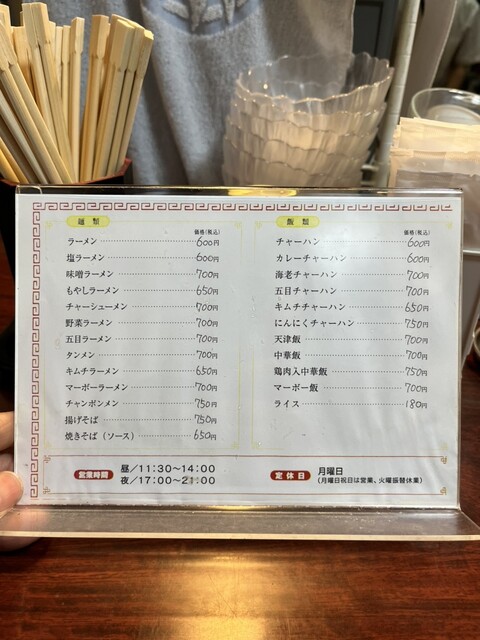 麺類
価格(税込)
ラーメン 600円
塩ラーメン 600円
味噌ラーメン 700円
もやしラーメン 650円
チャーシューメン 700円
野菜ラーメン 700円
五目ラーメン 700円
タンメン 700円
キムチラーメン 650円
マーボーラーメン 700円
チャンポンメン 750円
揚げそば 750円
焼きそば（ソース） 650円
飯類
価格(税込)
チャーハン 600円
カレーチャーハン 600円
海老チャーハン 700円
五目チャーハン 700円
キムチチャーハン 650円
にんにくチャーハン 750円
天津飯 700円
中華飯 700円
鶏肉入中華飯 750円
マーボー飯 700円
ライス 180円
営業時間
昼／11:30〜14:00
夜／17:00〜21:00
定休日
月曜日
(月曜日祝日は営業、火曜振替休業)